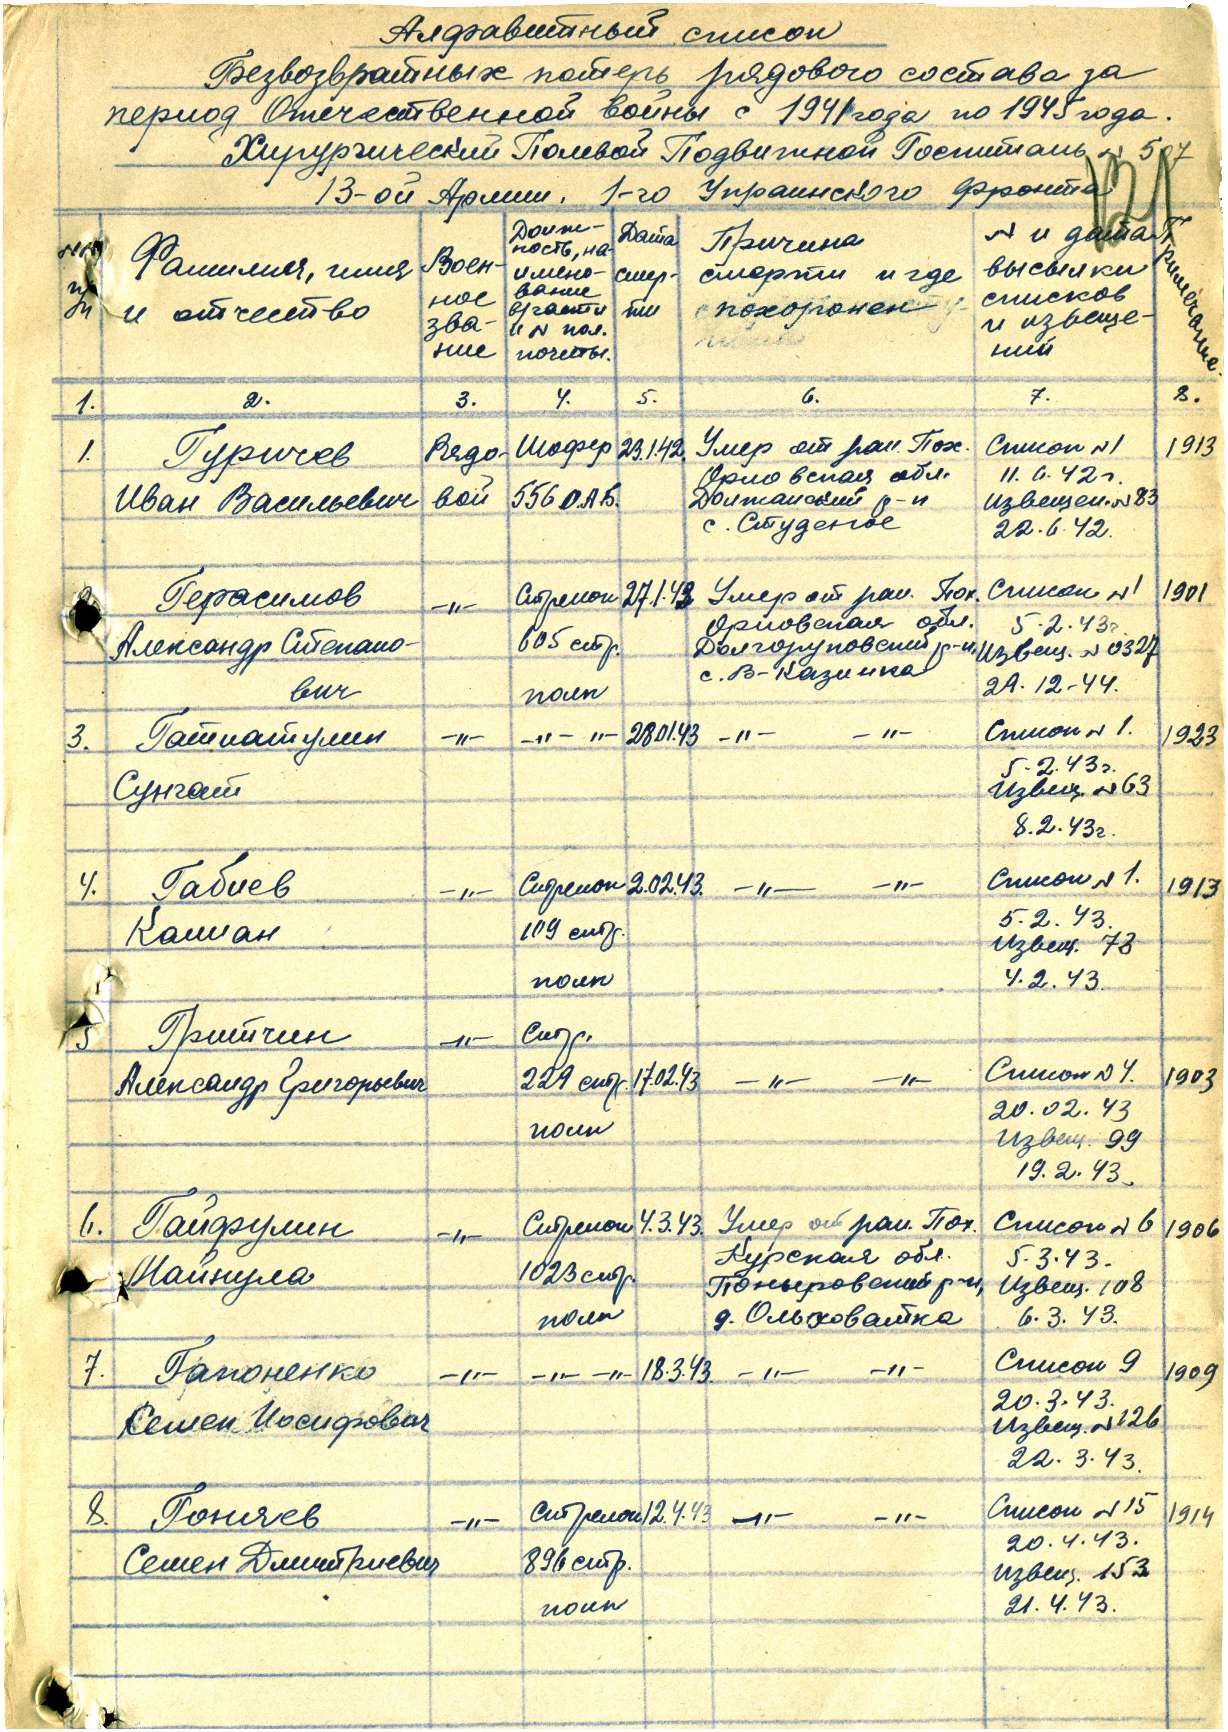 Алфавитный список
Безвозвратных потерь рядового состава за
период Отечественной войны с 1941 года по 1945 года.
Хирургический Полевой Подвижной Госпиталь № 507
13-ой Армии. 1-го Украинского Фронта
№№ п/п
Фамилия, имя и отчество
Воен-
ное
зва-
ние
Долж-
ность, на-
имено-
вание
в/части
и № пол.
почты.
Дата
смер-
ти
Причина
смерти и где
похоронен
№ и дата
высылки
списков
и извеще-
ний
Примечание.
1. 2. 3. 4. 5. 6. 7. 8.
1. Гуричев Рядо- Шофер 23.1.42. Умер от ран. Пох. Список №1 1913
Орловская обл. 11.6.42г.
Иван Васильевич вой 556 О.А.Б. Должанский р-н Извещен. №83
с. Студеное 22.6.42.
2. Герасимов -"- Стрелок 27.1.43 Умер от ран. Пох. Список №1 1901
Орловская обл. 5.2.43г.
Александр Степано- 605 стр. Долгоруковский р-н, Извещ. №0327
с. В-Казинка
вич полк 29.12-44.
3. Гатиатулин -"- -"- "- 28.01.43 -"- -"- Список №1. 1923
5.2.43г.
Сунгат Извещ. №63
8.2.43г.
4. Габиев -"- Стрелок 2.02.43. -"- -"- Список №1. 1913
Калиан 109 стр. 5.2.43.
Извещ. 78
полк 4.2.43.
5 Гритчин -"- Стр.
Александр Григорьевич 229 стр. 17.02.43 -"- -"- Список №4. 1903
20.02.43
полк Извещ. 99
19.2.43.
6. Гайфулин -"- Стрелок 4.3.43. Умер от ран. Пох. Список №6 1906
Курская обл. 5.3.43.
Найнула 1023 стр. Поныровский р-н, Извещ. 108
полк д. Ольховатка 6.3.43.
7. Гапоненко -"- -"- -"- 18.3.43. -"- -"- Список 9 1909
20.3.43.
Семен Иосифович Извещ. №126
22.3.43.
8. Гоняев -"- Стрелок 12.4.43 -"- -"- Список №15 1914
20.4.43.
Семен Дмитриевич 896 стр. Извещ. 153
полк 21.4.43.